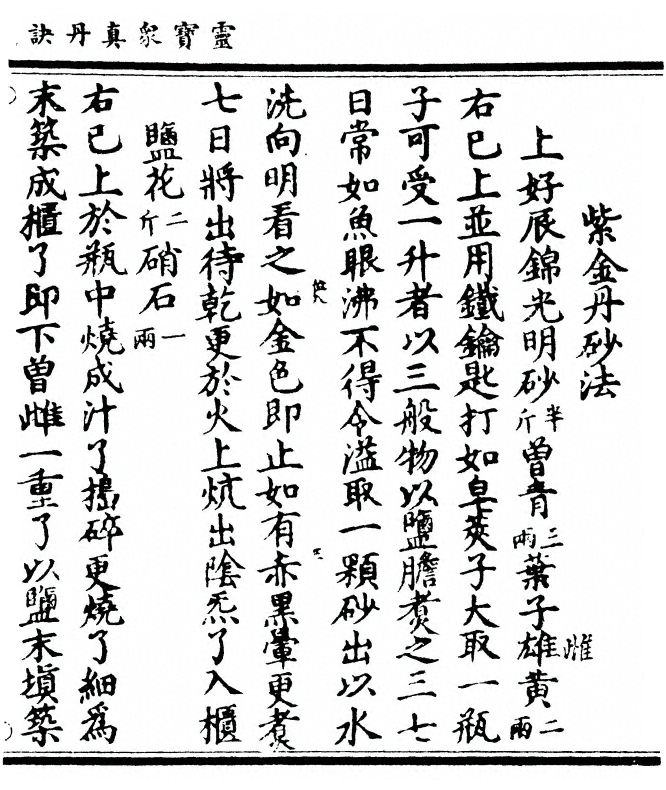 靈寶眾真丹訣
紫金丹砂法
上好辰錦光明砂半斤曾青三兩葉子雄黃二兩
雌
右已上並用鐵鑰匙打如皁莢子大取一瓶
子可受一升者以三般物以鹽膽煑之三七
日常如魚眼沸不得令溢取一顆砂出以水
洗向明看之如金色即止如有赤黑暈更煑
七日將出待乾更於火上炕出陰炁了入櫃
鹽花二斤硝石一兩
右已上於瓶中燒成汁了搗碎更燒了細爲
末築成櫃了即下曾雌一重了以鹽末填築